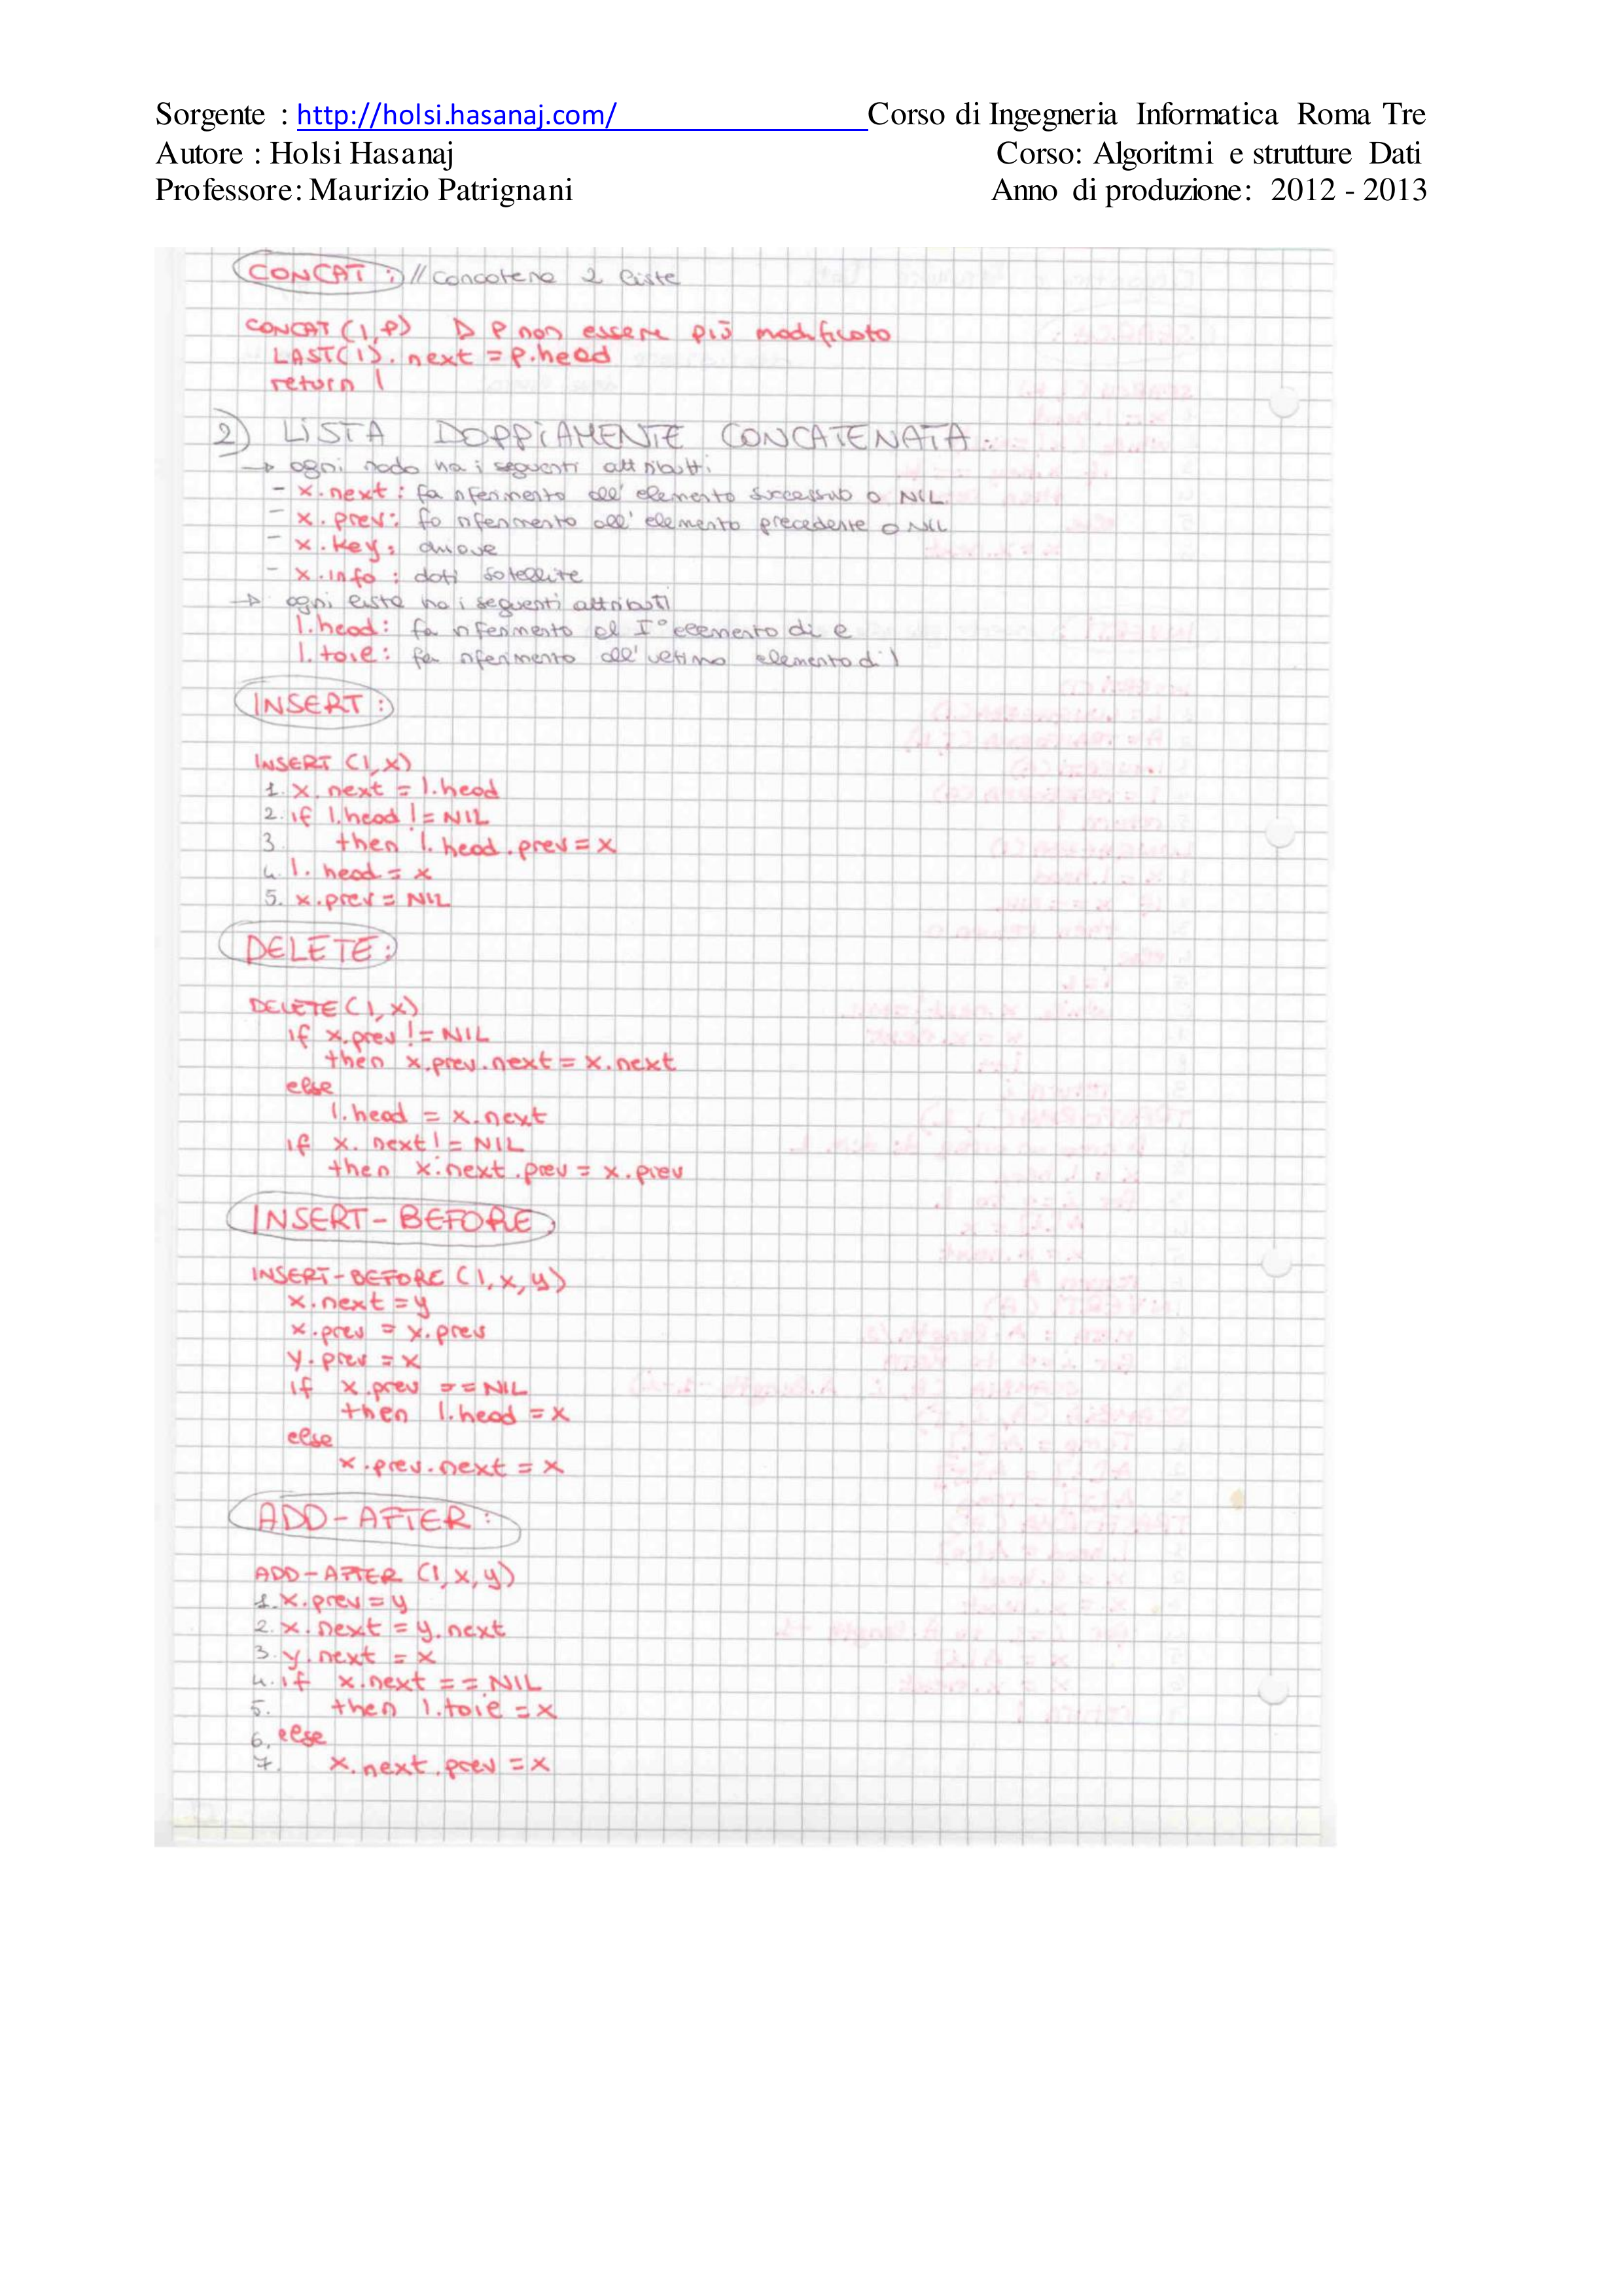 Sorgente : http://holsi.hasanaj.com/ Corso di Ingegneria Informatica Roma Tre
Autore : Holsi Hasanaj Corso: Algoritmi e strutture Dati
Professore: Maurizio Patrignani Anno di produzione: 2012 - 2013
CONCAT : // concatena 2 liste
CONCAT (l, p) ▷ p non essere più modificato
LAST(l). next = p.head
return l
2) LISTA DOPPIAMENTE CONCATENATA:
→ ogni nodo ha i seguenti attributi
- x.next : fa riferimento all' elemento successivo o NIL
- x.prev: fa riferimento all' elemento precedente o NIL
- x.key: chiave
- x.info : dati satellite
→ ogni lista ha i seguenti attributi
l.head: fa riferimento al I° elemento di l
l.tail: fa riferimento all'ultimo elemento di l
INSERT :
INSERT (l,x)
1. x.next = l.head
2. if l.head != NIL
3. then l.head.prev = x
4. l.head = x
5. x.prev = NIL
DELETE :
DELETE (l,x)
if x.prev != NIL
then x.prev.next = x.next
else
l.head = x.next
if x.next != NIL
then x.next.prev = x.prev
INSERT-BEFORE :
INSERT-BEFORE (l,x,y)
x.next = y
x.prev = y.prev
y.prev = x
if x.prev == NIL
then l.head = x
else
x.prev.next = x
ADD-AFTER :
ADD-AFTER (l,x,y)
1. x.prev = y
2. x.next = y.next
3. y.next = x
4. if x.next == NIL
5. then l.tail = x
6. else
7. x.next.prev = x